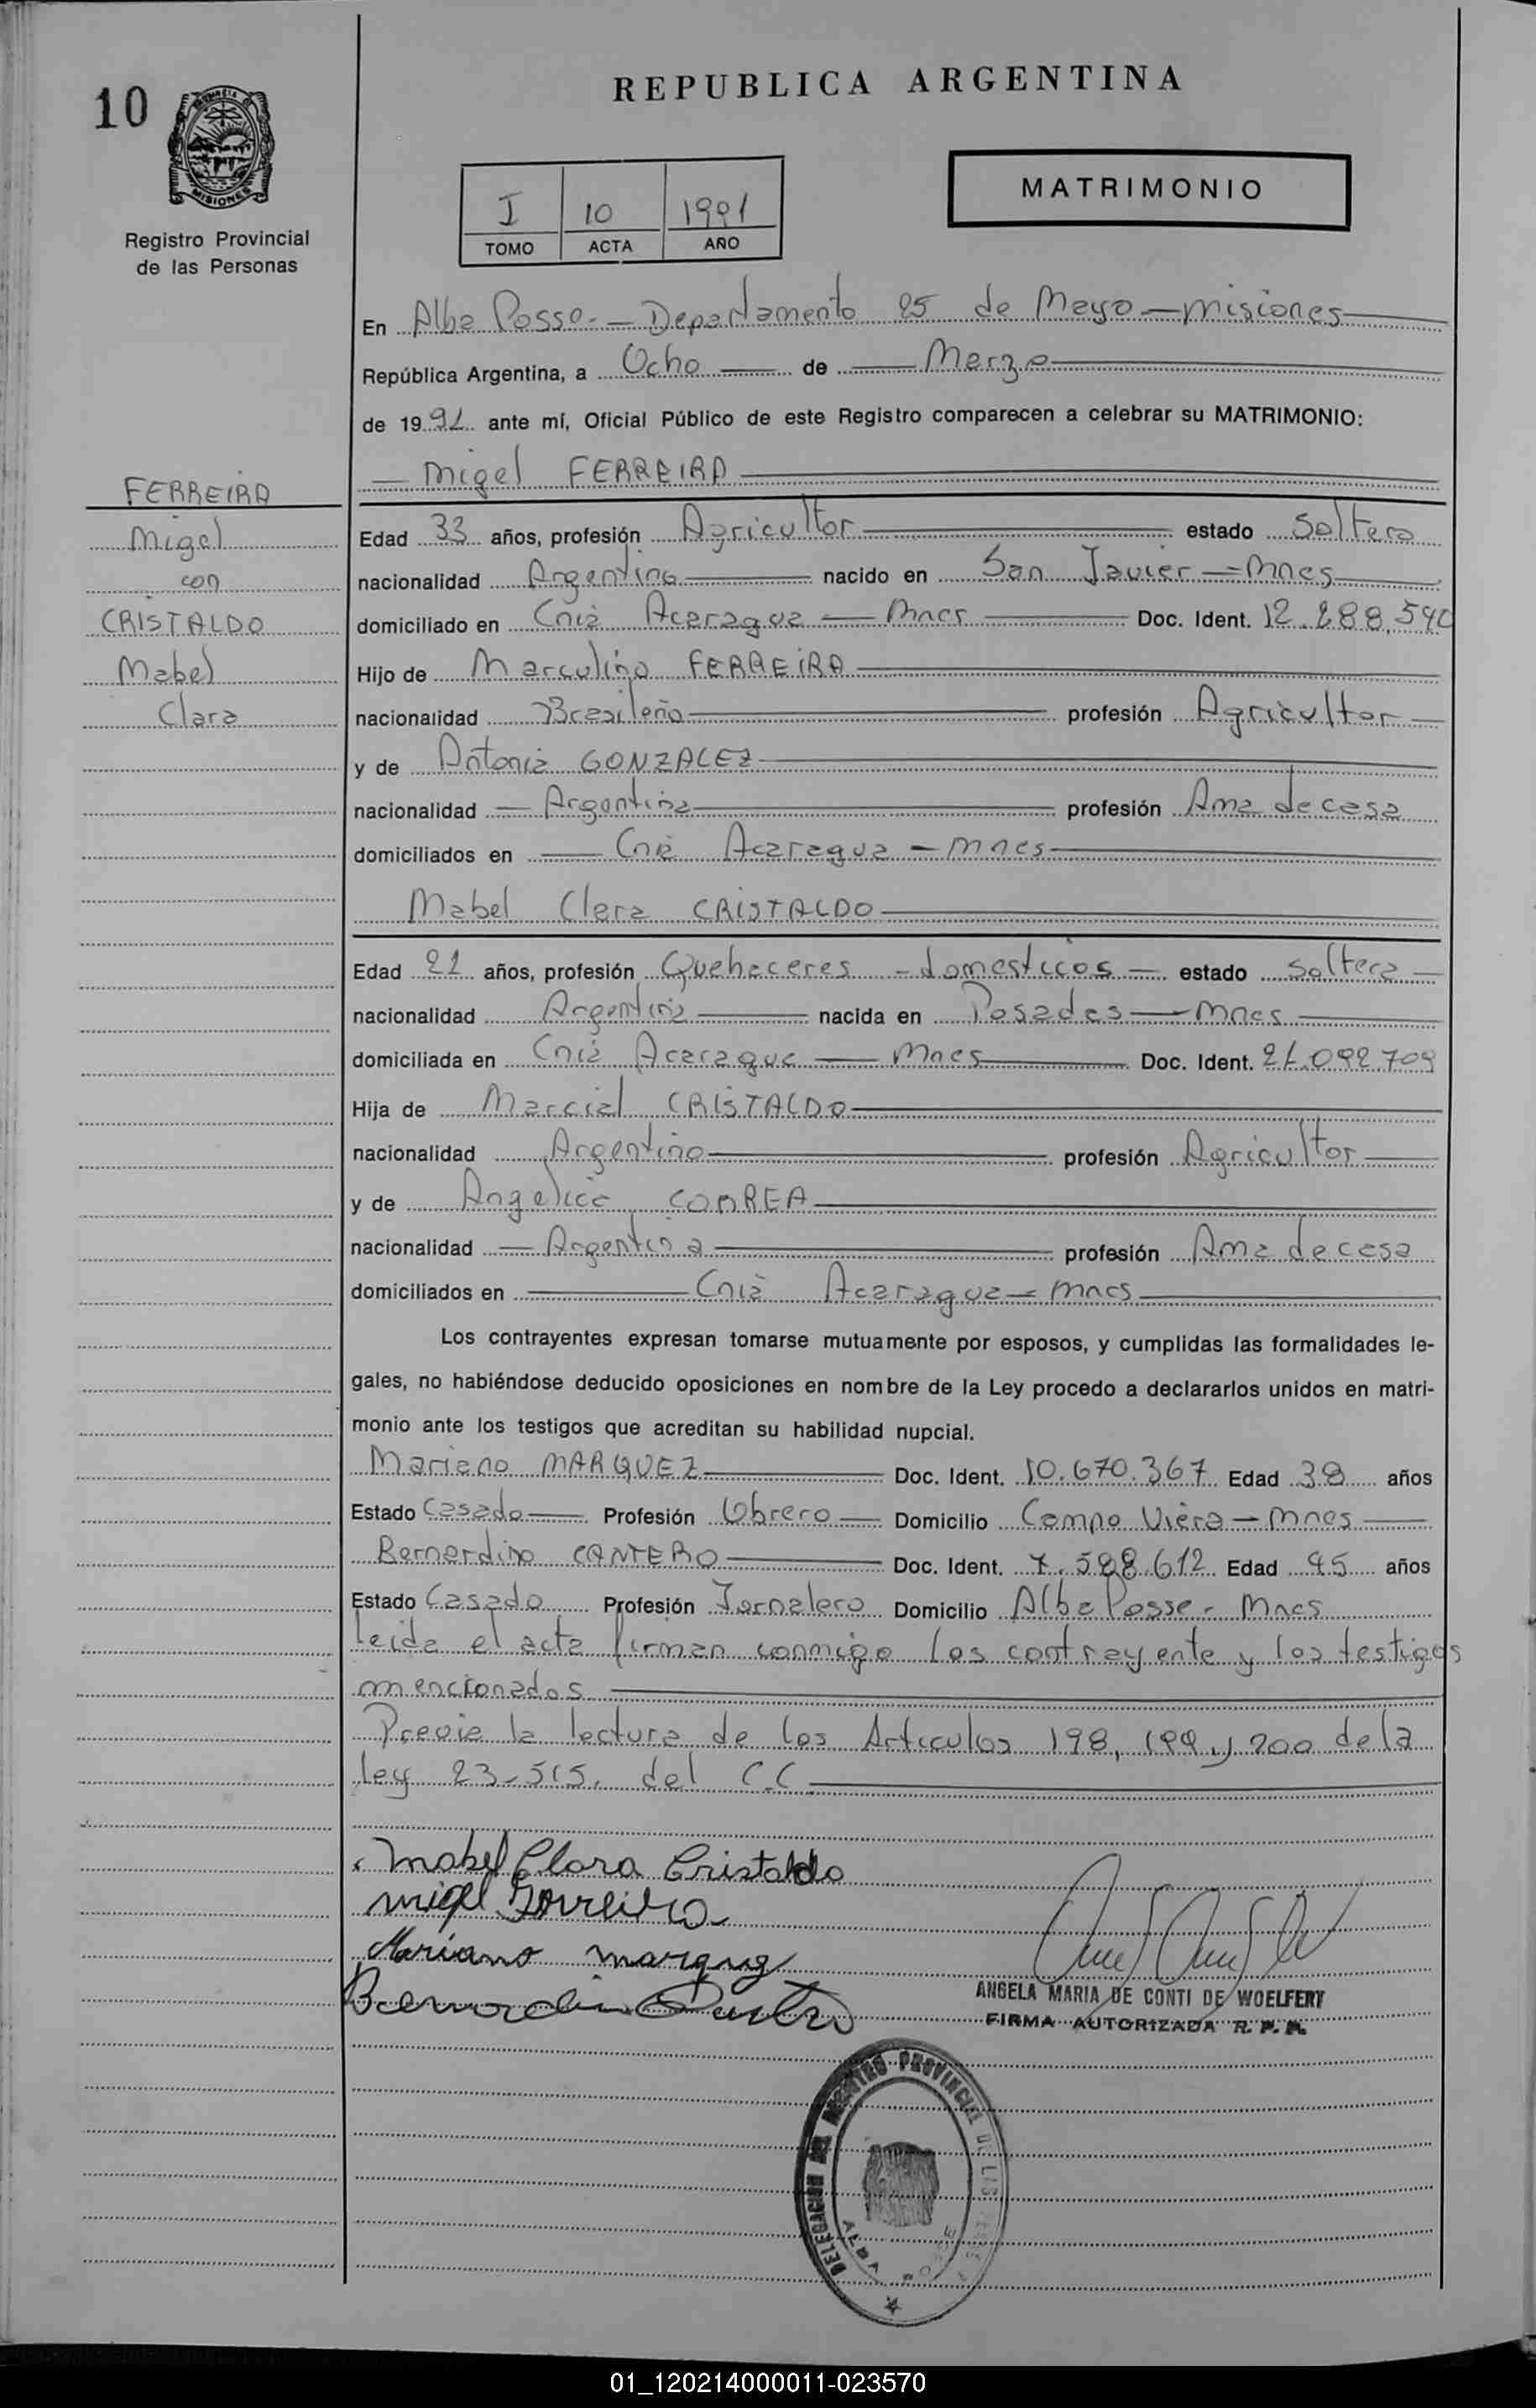 REPUBLICA ARGENTINA
10
MISIONES
Registro Provincial
de las Personas
I 10 1991
TOMO ACTA AÑO
MATRIMONIO
En Alba Posse - Departamento 25 de Mayo - Misiones
República Argentina, a Ocho de Marzo
de 1991 ante mí, Oficial Público de este Registro comparecen a celebrar su MATRIMONIO:
Migel FERREIRA
FERREIRA
Migel
con
CRISTALDO
Mabel
Clara
Edad 33 años, profesión Agricultor estado Soltero
nacionalidad Argentina nacido en San Javier - Mnes
domiciliado en Cnia Acaragua - Mnes Doc. Ident. 12.288.540
Hijo de Marculino FERREIRA
nacionalidad Brasileño profesión Agricultor
y de Antonia GONZALEZ
nacionalidad Argentina profesión Ama de casa
domiciliados en Cnia Acaragua - Mnes
Mabel Clara CRISTALDO
Edad 21 años, profesión Quehaceres - domesticos - estado Soltera
nacionalidad Argentina nacida en Posadas - Mnes
domiciliada en Cnia Acaragua - Mnes Doc. Ident. 21.092.709
Hija de Marcial CRISTALDO
nacionalidad Argentino profesión Agricultor
y de Angelica CORREA
nacionalidad Argentina profesión Ama de casa
domiciliados en Cnia Acaragua - Mnes
Los contrayentes expresan tomarse mutuamente por esposos, y cumplidas las formalidades le-
gales, no habiéndose deducido oposiciones en nombre de la Ley procedo a declararlos unidos en matri-
monio ante los testigos que acreditan su habilidad nupcial.
Mariano MARQUEZ Doc. Ident. 10.670.367 Edad 38 años
Estado Casado Profesión Obrero Domicilio Campo Viera - Mnes
Bernardino CANTERO Doc. Ident. 7.588.612 Edad 45 años
Estado Casado Profesión Jornalero Domicilio Alba Posse - Mnes
Leida el acta firman conmigo los contrayente y los testigos
mencionados
Previa la lectura de los Articulos 198, 199 y 200 de la
ley 23-515. del C.C
Mabel Clara Cristaldo
Migel Ferreira
Mariano Marquez
Bernardino
ANGELA MARIA DE CONTI DE WOELFERT
FIRMA AUTORIZADA R. P. P.
DELEGACION DEL REGISTRO PROVINCIAL DE LAS
ALBA POSSE
01_120214000011-023570